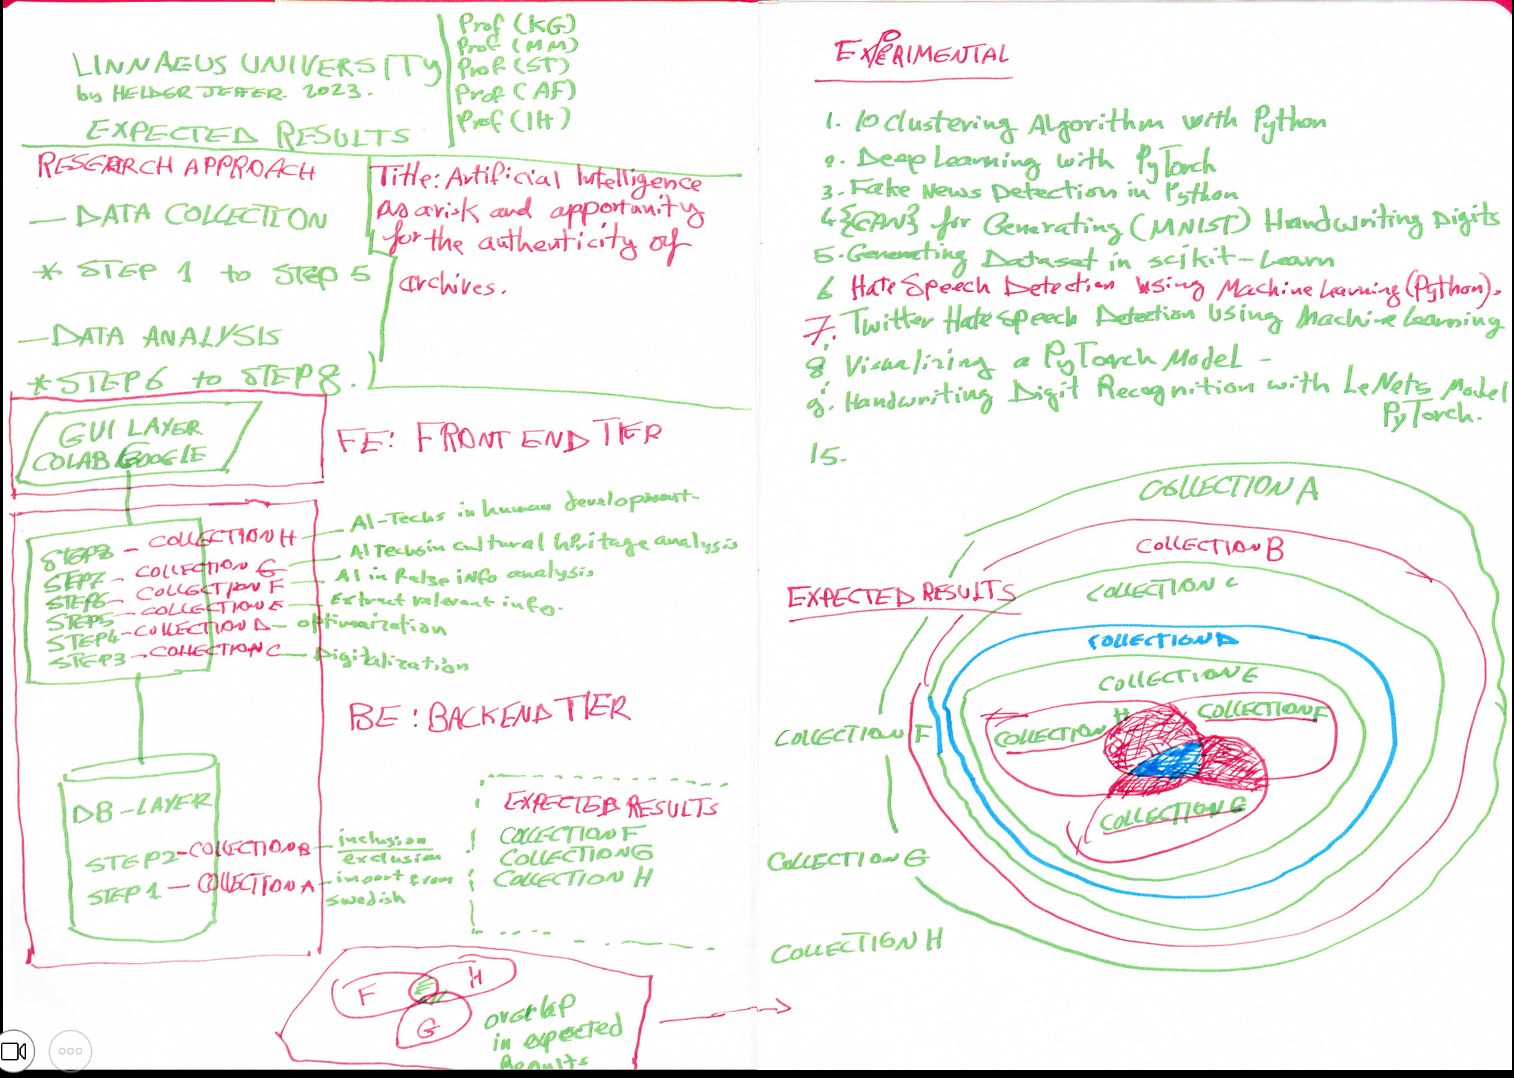 LINNAEUS UNIVERSITY
by HELDER JEFFER. 2023.
EXPECTED RESULTS
Prof (KG)
Prof (MM)
Prof (ST)
Prof (AF)
Prof (IH)
RESEARCH APPROACH
— DATA COLLECTION
* STEP 1 to STEP 5
— DATA ANALYSIS
* STEP 6 to STEP 8.
Title: Artificial Intelligence
as a risk and apportunity
for the authenticity of
archives.
GUI LAYER
COLAB GOOGLE
FE: FRONT END TIER
STEP8 - COLLECTION H - AI-Techs in human development
STEP7 - COLLECTION G - AI Techs in cultural heritage analysis
STEP6 - COLLECTION F - AI in False info analysis
STEP5 - COLLECTION E - Extract relevant info.
STEP4 - COLLECTION D - optimization
STEP3 - COLLECTION C - Digitalization
BE: BACKEND TIER
DB-LAYER
STEP2 - COLLECTION B - inclusion/
exclusion
STEP 1 - COLLECTION A - import from
swedish
EXPECTED RESULTS
COLLECTION F
COLLECTION G
COLLECTION H
F
H
G
overlap
in expected
Results
EXPERIMENTAL
1. 10 Clustering Algorithm with Python
2. Deep Learning with PyTorch
3. Fake News Detection in Python
4 {GAN} for Generating (MNIST) Handwriting Digits
5. Generating Dataset in scikit-Learn
6 Hate Speech Detection Using Machine Learning (Python).
7. Twitter Hate Speech Detection Using Machine Learning
8. Visualizing a PyTorch Model -
9. Handwriting Digit Recognition with LeNet5 Model
PyTorch.
15.
COLLECTION A
COLLECTION B
EXPECTED RESULTS
COLLECTION C
COLLECTION D
COLLECTION E
COLLECTION H
COLLECTION F
COLLECTION F
COLLECTION G
COLLECTION G
COLLECTION H